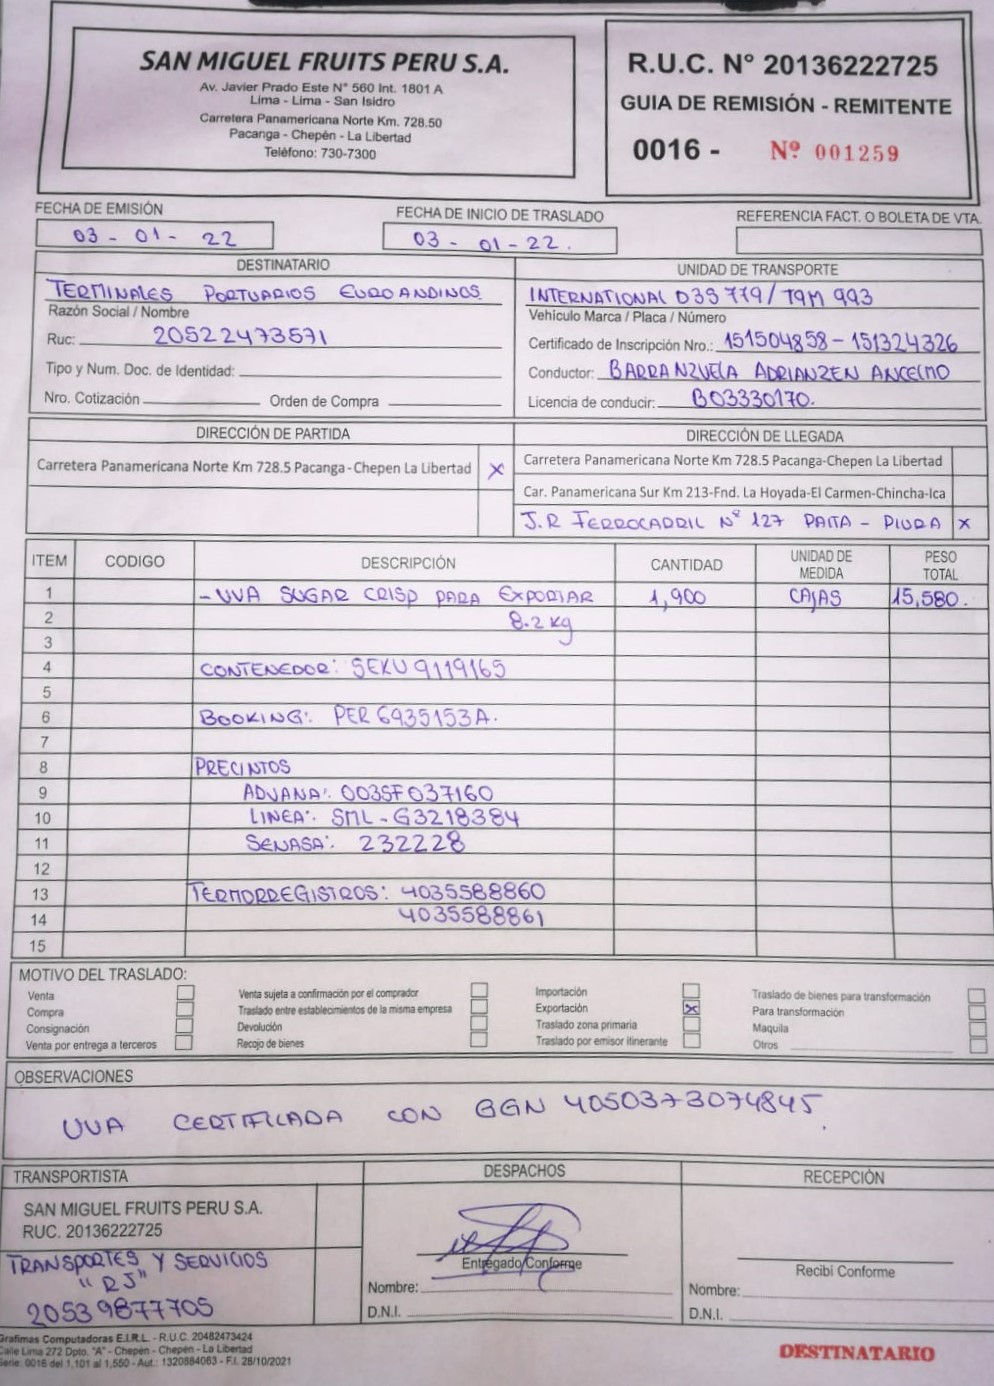 SAN MIGUEL FRUITS PERU S.A.
Av. Javier Prado Este N° 560 Int. 1801 A
Lima - Lima - San Isidro
Carretera Panamericana Norte Km. 728.50
Pacanga - Chepén - La Libertad
Teléfono: 730-7300
R.U.C. N° 20136222725
GUIA DE REMISIÓN - REMITENTE
0016 - Nº 001259
FECHA DE EMISIÓN
03 - 01 - 22
FECHA DE INICIO DE TRASLADO
03 - 01 - 22.
REFERENCIA FACT. O BOLETA DE VTA.
DESTINATARIO
TERMINALES PORTUARIOS EUROANDINOS
Razón Social / Nombre
Ruc: 20522473571
Tipo y Num. Doc. de Identidad:
Nro. Cotización Orden de Compra
UNIDAD DE TRANSPORTE
INTERNATIONAL D3S 779 / T9M 993
Vehículo Marca / Placa / Número
Certificado de Inscripción Nro.: 151504858 - 151324326
Conductor: BARRANZUELA ADRIANZEN ANCELMO
Licencia de conducir: B03330170.
DIRECCIÓN DE PARTIDA
Carretera Panamericana Norte Km 728.5 Pacanga-Chepen La Libertad X
DIRECCIÓN DE LLEGADA
Carretera Panamericana Norte Km 728.5 Pacanga-Chepen La Libertad
Car. Panamericana Sur Km 213-Fnd. La Hoyada-El Carmen-Chincha-Ica
J.R FERROCARRIL Nº 127 PAITA - PIURA X
ITEM CODIGO DESCRIPCIÓN CANTIDAD UNIDAD DE MEDIDA PESO TOTAL
1 - UVA SUGAR CRISP PARA EXPORTAR 1,900 CAJAS 15,580.
2 8.2 kg
3
4 CONTENEDOR: SEKU 9119165
5
6 BOOKING: PER 6935153A.
7
8 PRECINTOS
9 ADUANA: 003SF037160
10 LINEA: SML - G3218384
11 SENASA: 232228
12
13 TERMORREGISTROS: 4035588860
14 4035588861
15
MOTIVO DEL TRASLADO:
Venta
Compra
Consignación
Venta por entrega a terceros
Venta sujeta a confirmación por el comprador
Traslado entre establecimientos de la misma empresa
Devolución
Recojo de bienes
Importación
Exportación X
Traslado zona primaria
Traslado por emisor itinerante
Traslado de bienes para transformación
Para transformación
Maquila
Otros
OBSERVACIONES
UVA CERTIFICADA CON GGN 4050373074845.
TRANSPORTISTA
SAN MIGUEL FRUITS PERU S.A.
RUC. 20136222725
TRANSPORTES Y SERVICIOS
"RJ"
20539877705
DESPACHOS
Entregado Conforme
Nombre:
D.N.I.
RECEPCIÓN
Recibi Conforme
Nombre:
D.N.I.
Grafimas Computadoras E.I.R.L. - R.U.C. 20482473424
Calle Lima 272 Dpto. "A" - Chepén - Chepén - La Libertad
Serie: 0016 del 1,101 al 1,550 - Aut.: 1320884063 - F.I. 28/10/2021
DESTINATARIO